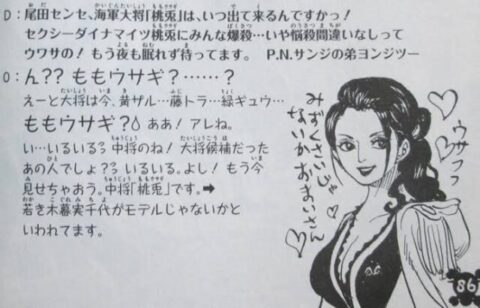 D：尾田センセ、海軍大将「桃兎」は、いつ出て来るんですかっ！
セクシーダイナマイツ桃兎にみんな爆殺…いや悩殺間違いなしって
ウワサの！もう夜も眠れず待ってます。 P.N.サンジの弟ヨンジツー
O：ん？？ ももウサギ？……？
えーと大将は今、黄ザル…藤トラ…緑ギュウ…
ももウサギ？ ああ！アレね。
い…いるいる？中将のね！大将候補だった
あの人でしょ？？いるいる。よし！もう今
見せちゃおう。中将「桃兎」です。➡
若き木暮実千代がモデルじゃないかと
いわれてます。
ウサフフ
みずくさいじゃ
ないかおまいさん
86